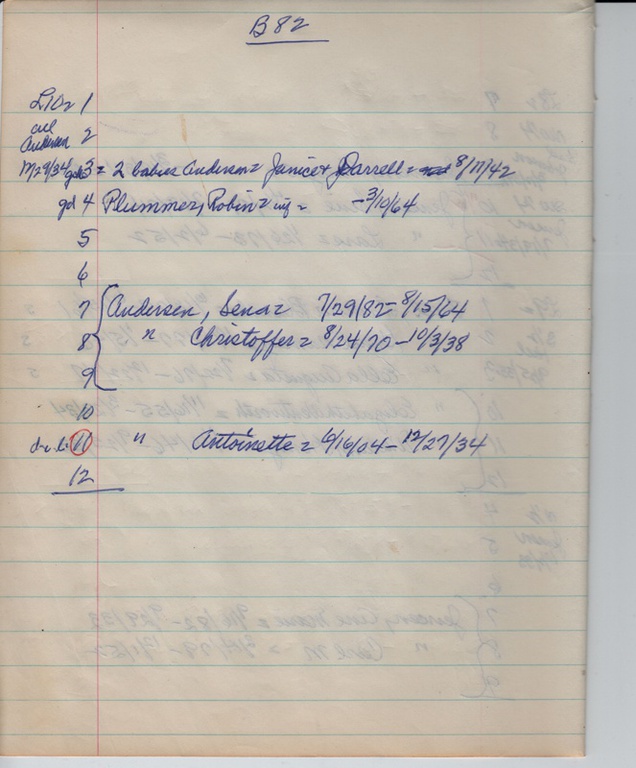 B82
L102 1
all
Andersen 2
12/29/34 gd 3 = 2 babies Andersen = Janice & Darrell = 8/17/42
gd 4 Plummer, Robin = inf = - 3/10/64
5
6
7 Andersen, Sena = 7/29/82 - 8/15/64
8 " Christoffer = 8/24/70 - 10/3/38
9
10
11 " Antoinette = 6/16/04 - 12/27/34
12